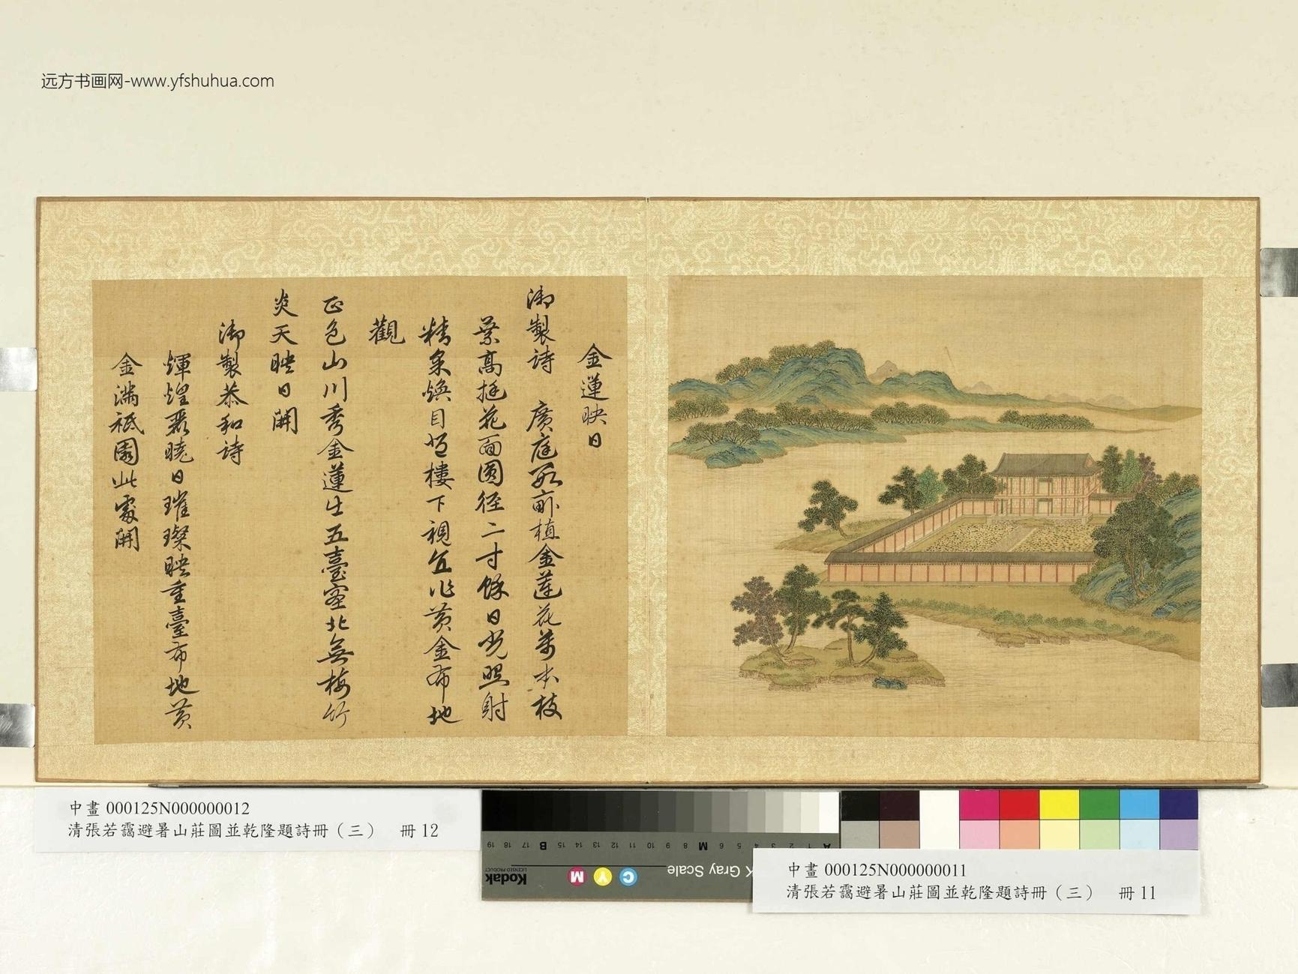 远方书画网-www.yfshuhua.com
金蓮映日
御製詩　廣庭數畝植金蓮花萬本枝
葉高挺花面圓徑二寸餘日光照射
精彩煥目登樓下視直作黃金布地
觀
正色山川秀金蓮出五臺塞北無梅竹
炎天映日開
御製恭和詩
輝煌羃曉日璀璨映重臺布地黃
金滿祇園此處開
中畫 000125N000000012
清張若靄避暑山莊圖並乾隆題詩冊（三） 冊 12
中畫 000125N000000011
清張若靄避暑山莊圖並乾隆題詩冊（三） 冊 11
19 18 17 B 16 15 14 13 12 11 10 9 8 M 7 6 5 4 3 2 1 A
Kodak
LICENSED PRODUCT
M Y C
K Gray Scale